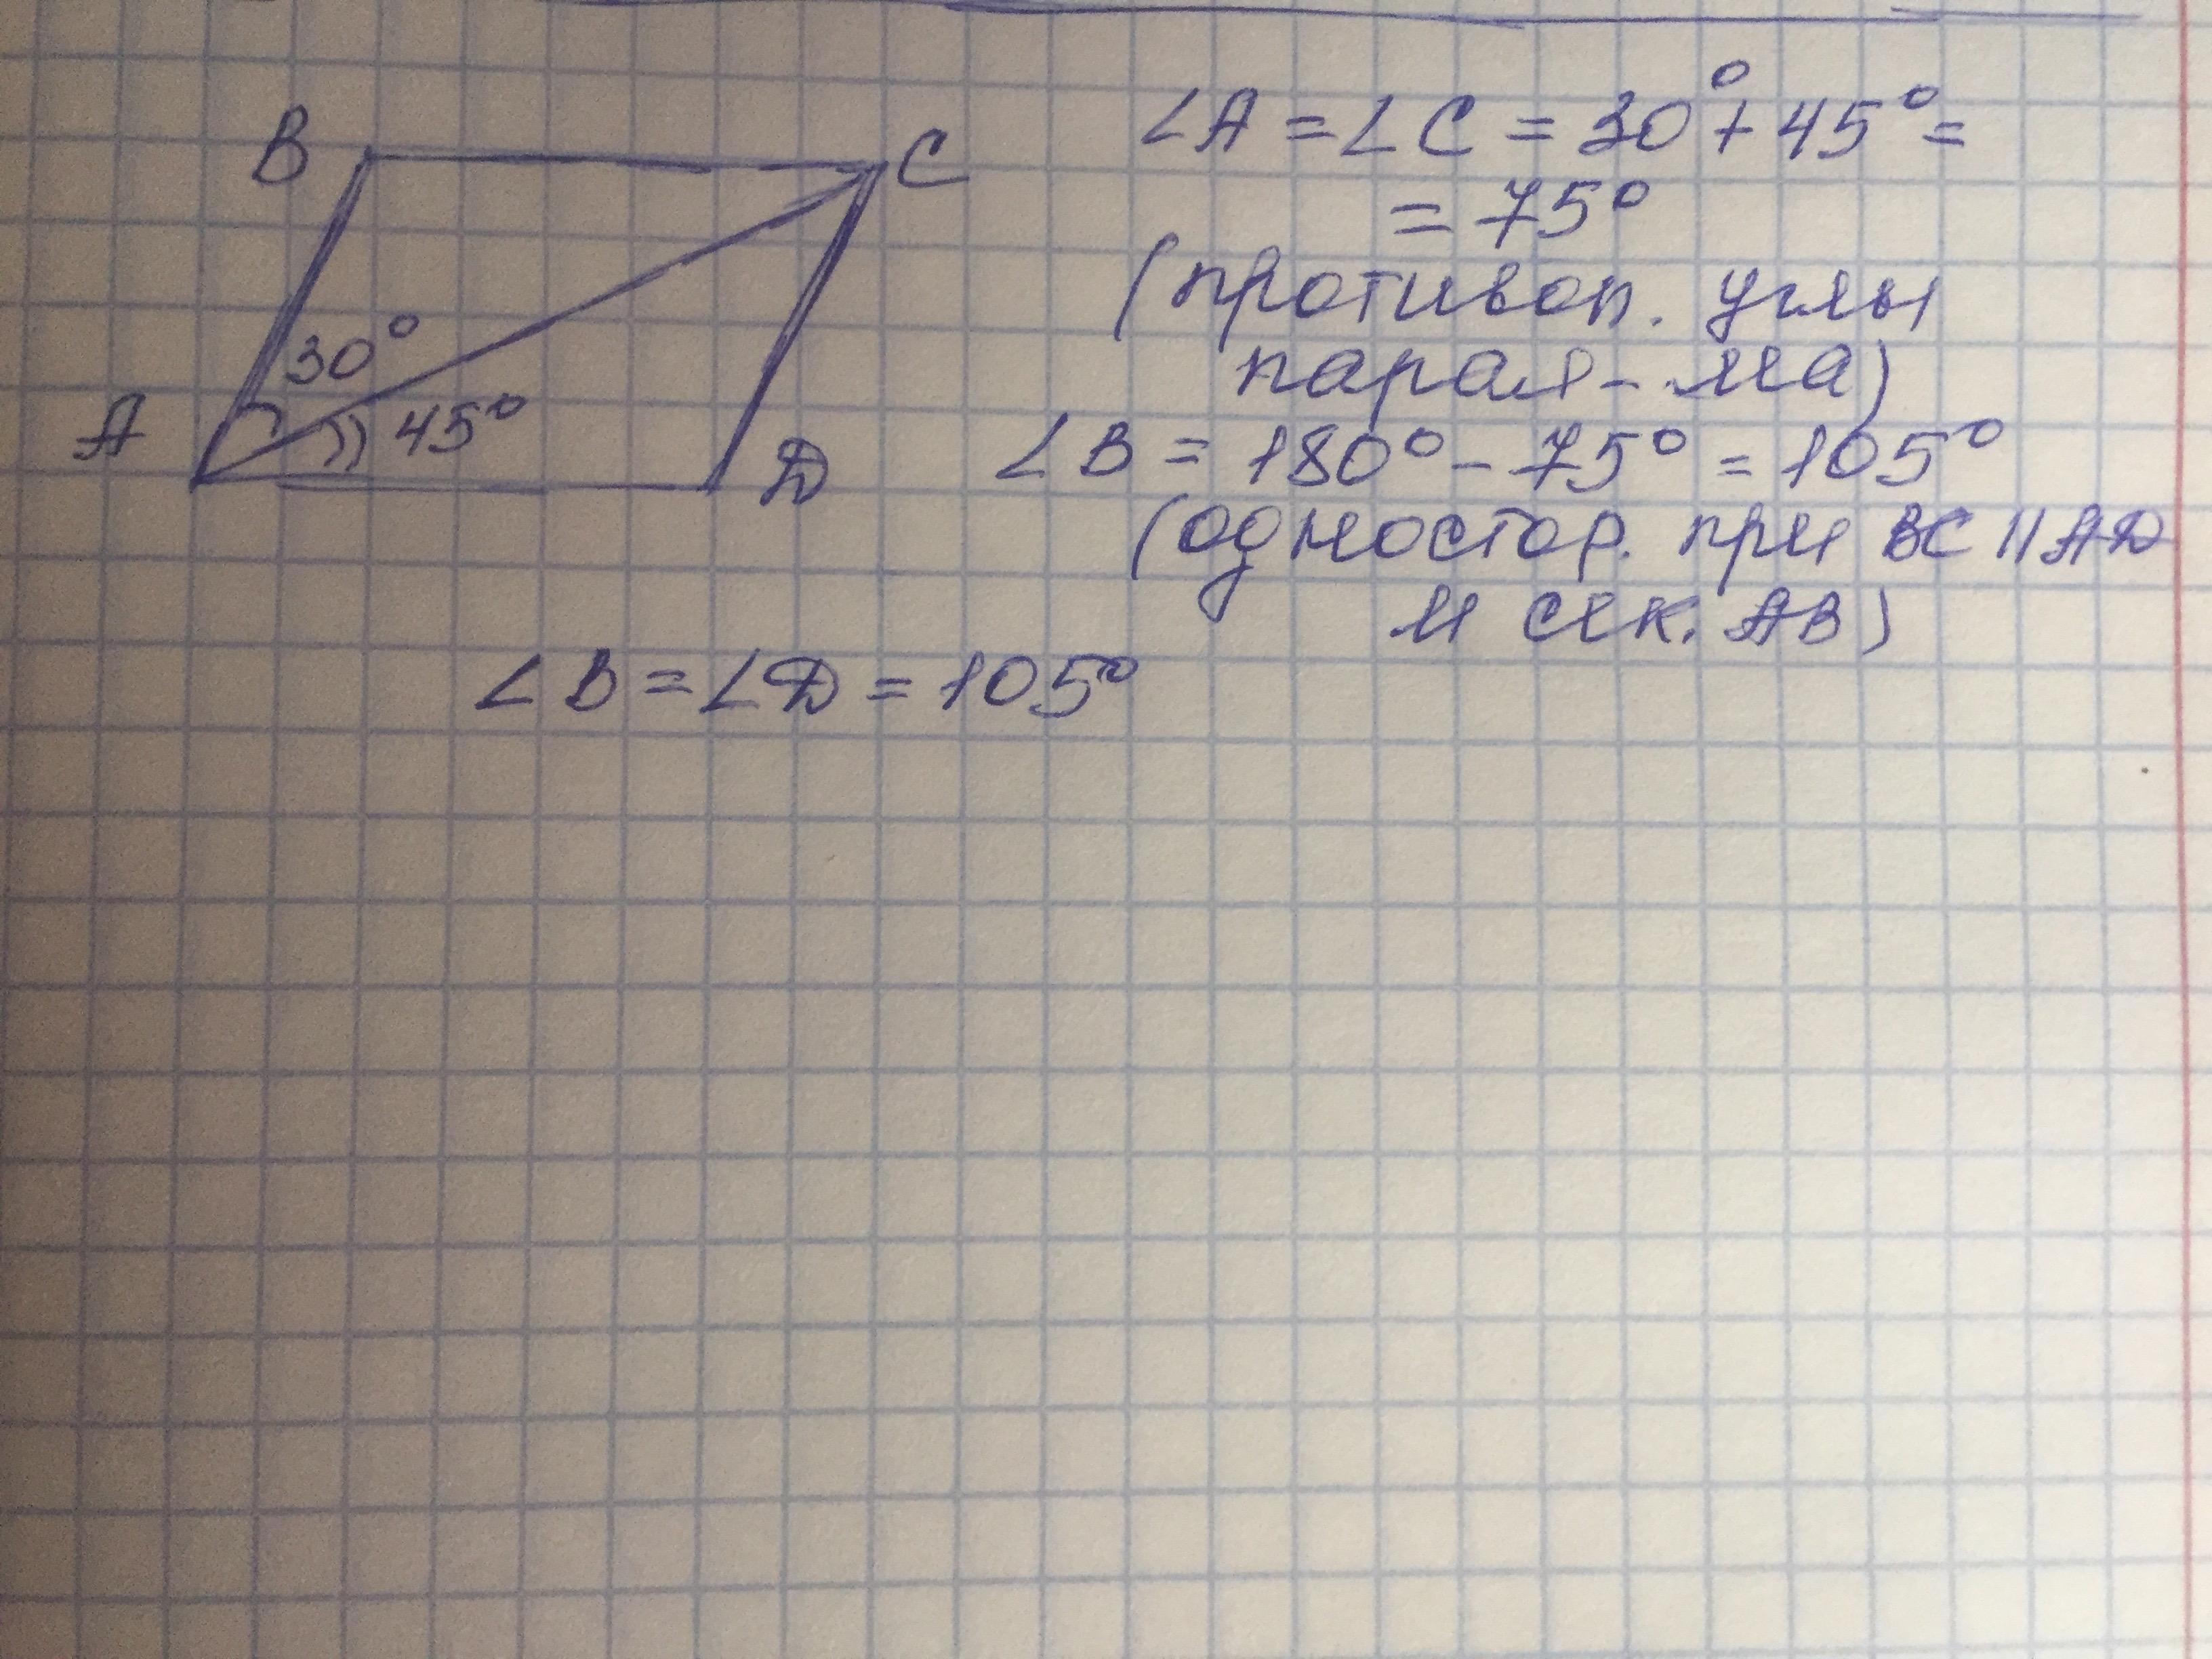 B
C
A
D
30°
45°
∠A = ∠C = 30° + 45° =
= 75°
(противоп. углы
парал-ма)
∠B = 180° - 75° = 105°
(одностор. при BC || AD
и сек. AB)
∠B = ∠D = 105°